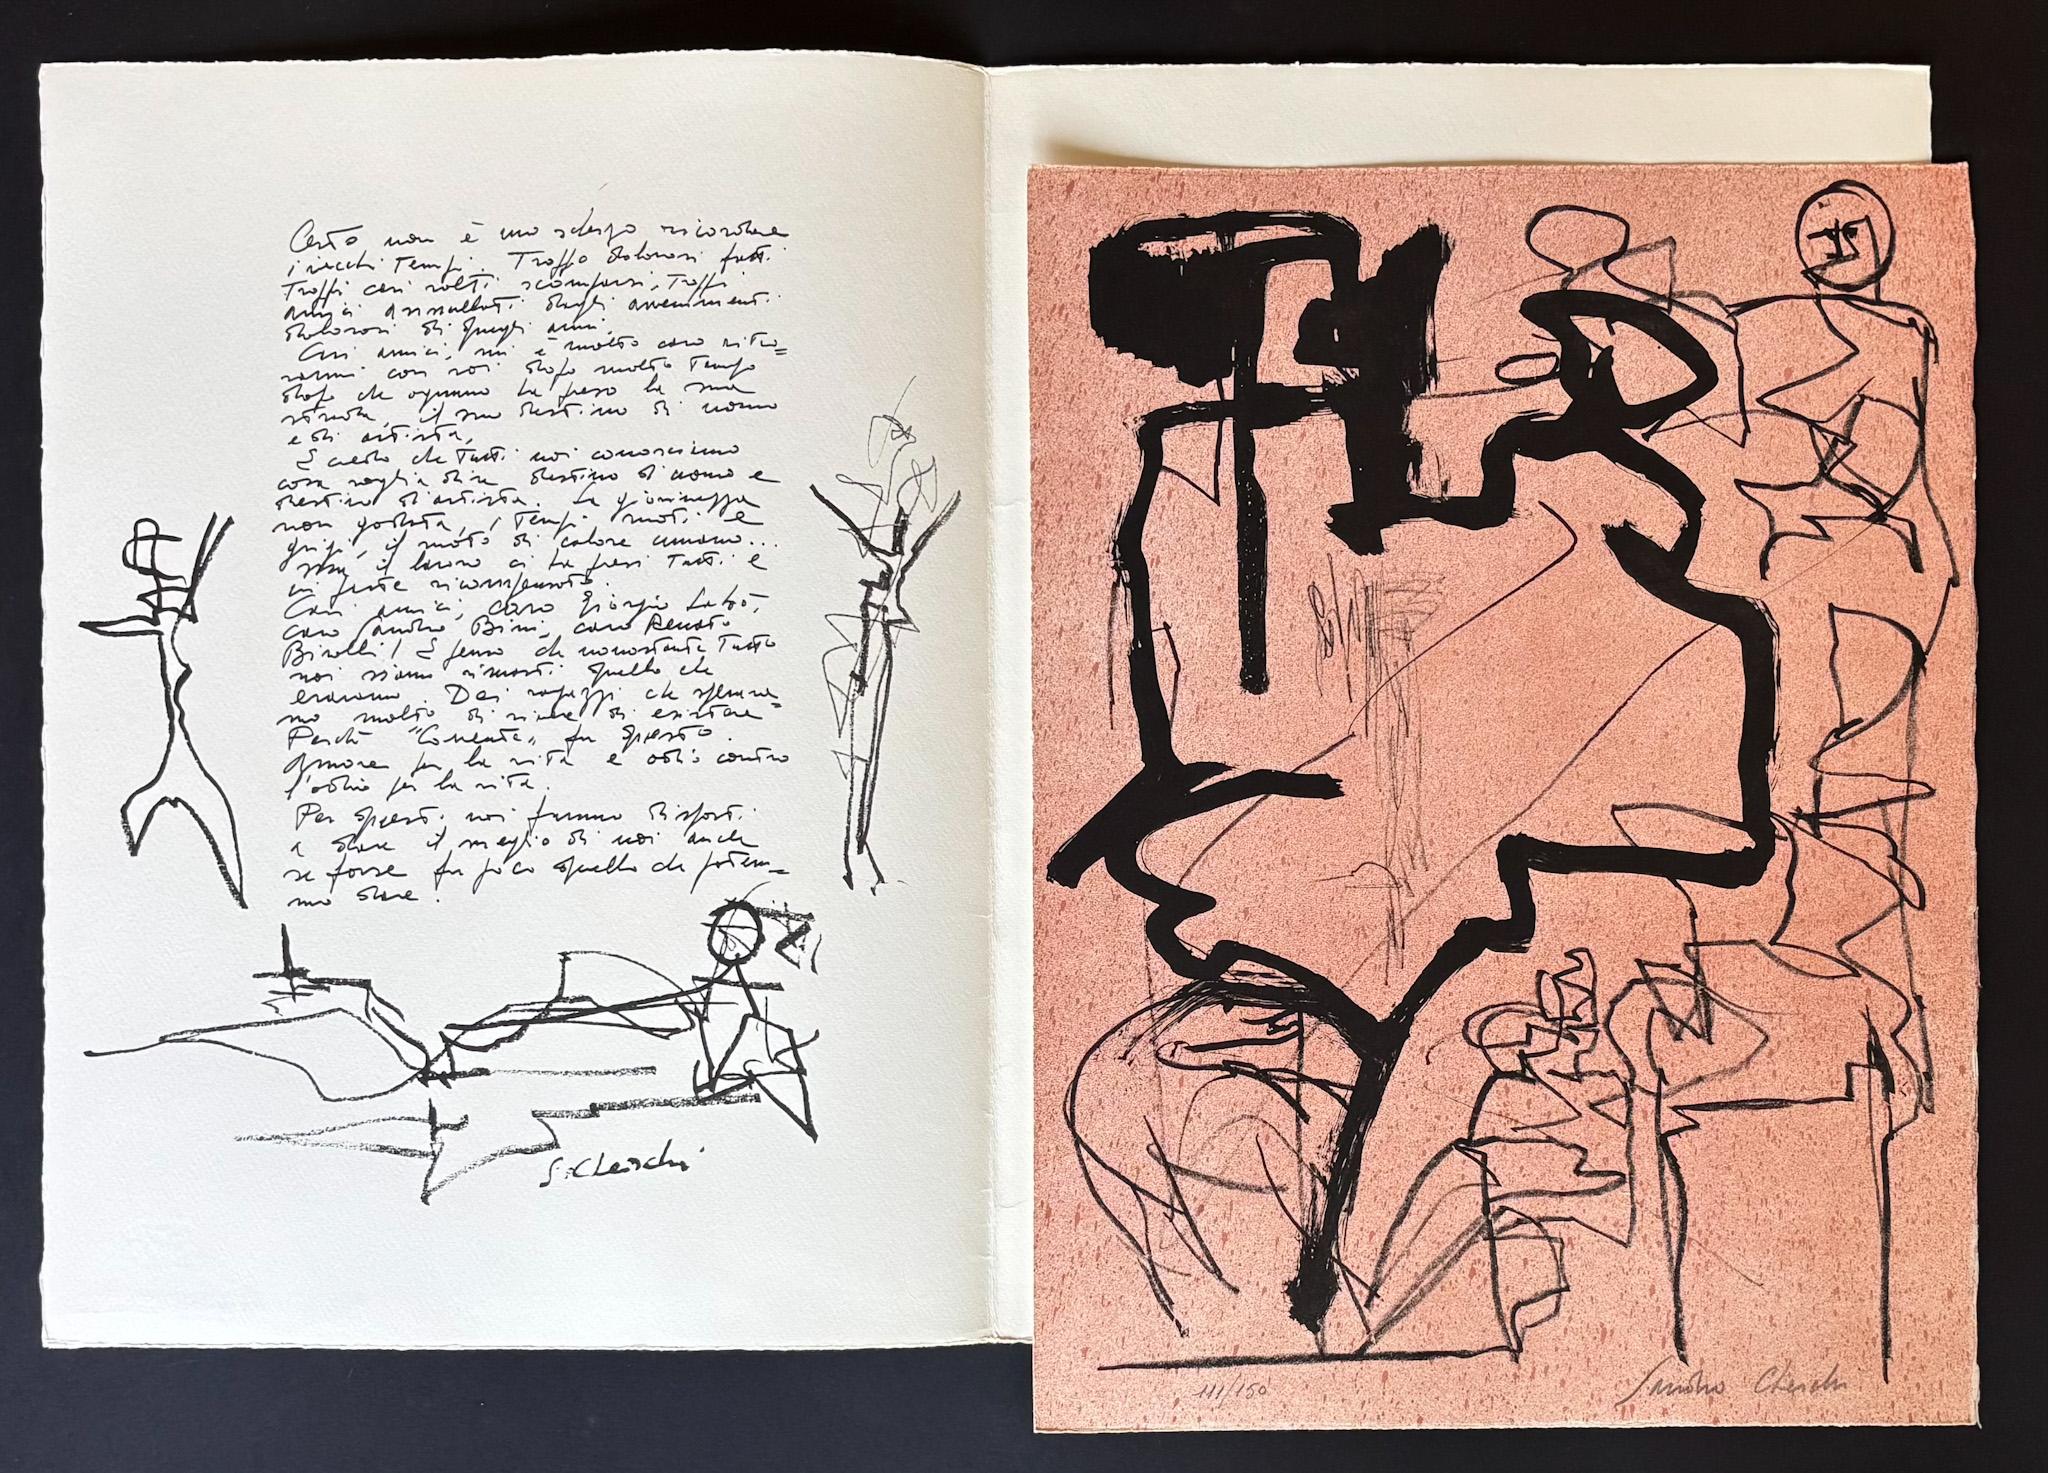 Certo non è uno scherzo ricordare
i vecchi Tempi. Troppo dolorosi fatti.
Troppi cari volti scomparsi, Troppi
amici assillati dagli avvenimenti
dolorosi di quegli anni.
Cari amici, mi è molto caro ritro=
varmi con voi dopo molto Tempo
dopo che ognuno ha preso la sua
strada, il suo destino di uomo
e di artista.
È certo che Tutti noi conosciamo
cosa voglia dire destino d'uomo e
destino d'artista. La giovinezza
non goduta, i Tempi vuoti e
grigi, il vuoto di calore umano...
ma il lavoro ci ha presi Tutti e
in parte ricompensato.
Cari amici, caro Giorgio Labò,
caro Sandro Bini, caro Renato
Birolli! E penso che nonostante Tutto
noi siamo rimasti quello che
eravamo. Dei ragazzi che speriva=
mo molto di vivere di esistere
Perchè "Corrente" fu questo.
Amore per la vita e odio contro
l'odio per la vita.
Per questo noi fummo disposti
a dare il meglio di noi anche
se forse fu poco quello che potem=
mo dare.
S. Cherchi
111/150 Sandro Cherchi